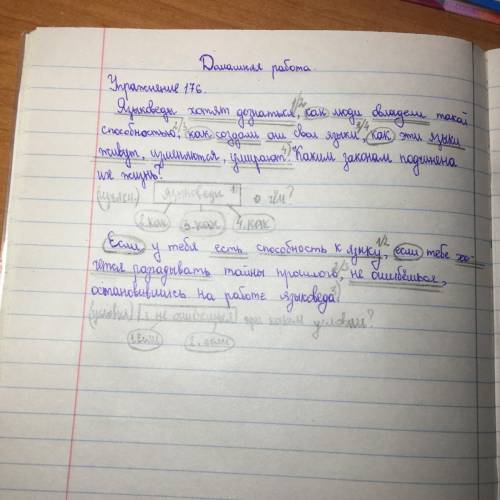 Домашняя работа.
Упражнение 176.
Языковеды хотят дознаться, 1/2 как люди овладели такой
способностью, 2/3 как создали они свои языки, 3/4 как эти языки
живут, изменяются, умирают. 4) Каким законам подчинена
их жизнь?
(изъясн.) языковеды 1 о чём?
2. как 3. как 4. как
Если у тебя есть способность к языку, 1/2 если тебе хо-
чется разгадывать тайны прошлого, 2/3 не ошибёшься,
остановившись на работе языковеда.
(условия) 3. не ошибёшься при каком условии?
1. если 2. если